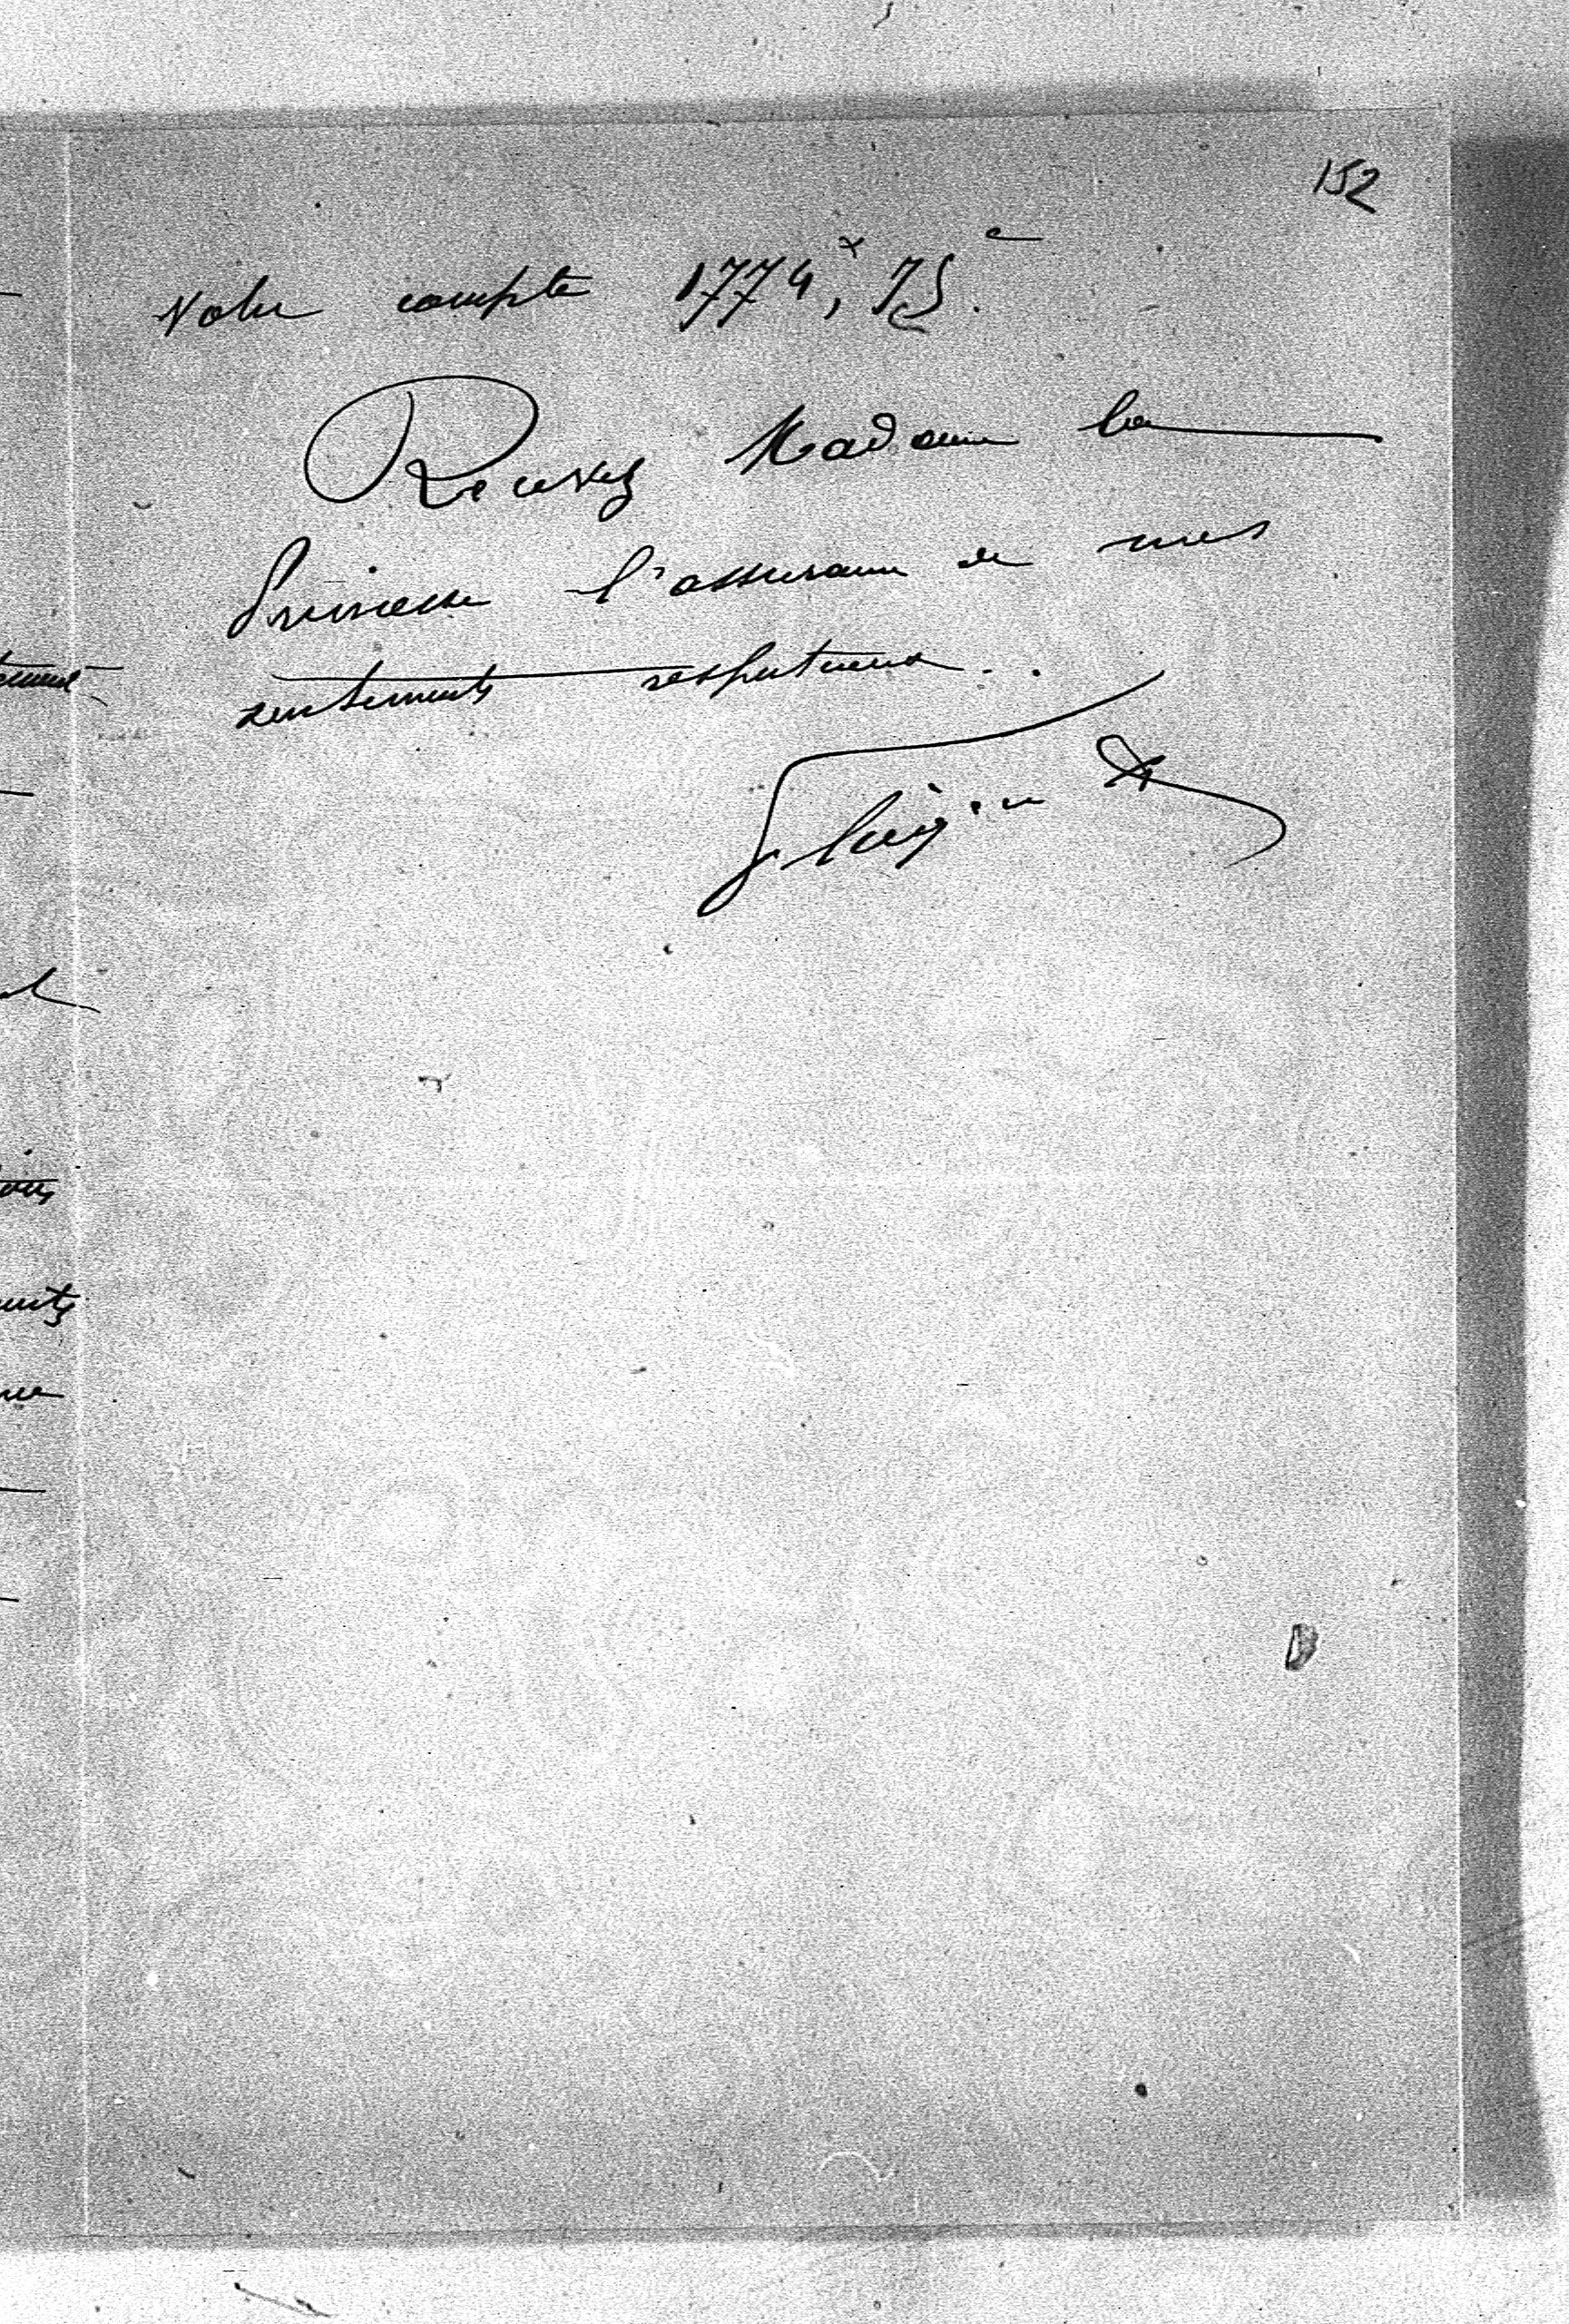 152
Votre compte 1774ˣ, 75ᶜ.
Recevez Madame la
Princesse l'assurance de mes
sentiments respectueux..